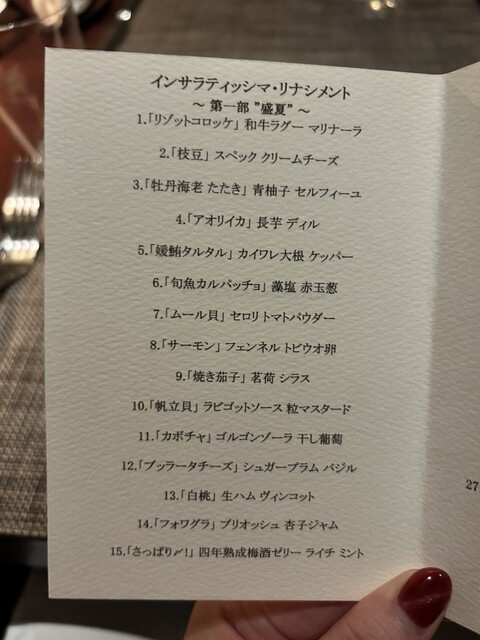 インサラティッシマ・リナシメント
～ 第一部 ”盛夏” ～
1.「リゾットコロッケ」 和牛ラグー マリナーラ
2.「枝豆」 スペック クリームチーズ
3.「牡丹海老 たたき」 青柚子 セルフィーユ
4.「アオリイカ」 長芋 ディル
5.「媛鮪タルタル」 カイワレ大根 ケッパー
6.「旬魚カルパッチョ」 藻塩 赤玉葱
7.「ムール貝」 セロリ トマトパウダー
8.「サーモン」 フェンネル トビウオ卵
9.「焼き茄子」 茗荷 シラス
10.「帆立貝」 ラビゴットソース 粒マスタード
11.「カボチャ」 ゴルゴンゾーラ 干し葡萄
12.「ブッラータチーズ」 シュガープラム バジル
13.「白桃」 生ハム ヴィンコット
14.「フォワグラ」 ブリオッシュ 杏子ジャム
15.「さっぱり〆!」 四年熟成梅酒ゼリー ライチ ミント
27